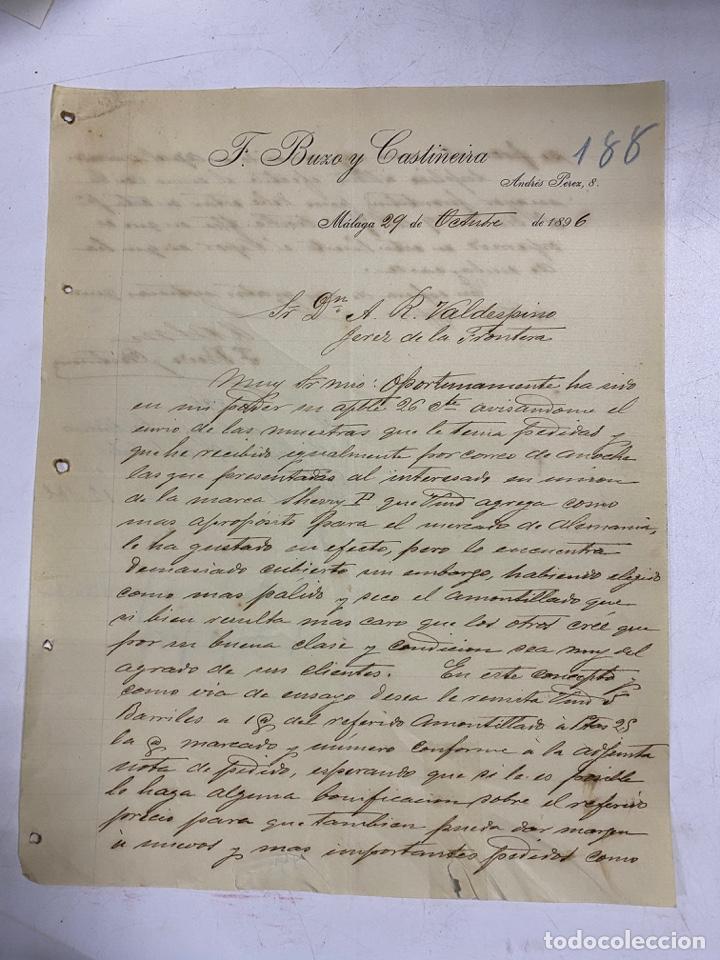 F. Buzo y Castiñeira
188
Andrés Perez, 8.
Málaga 29 de Octubre de 1896
Sr. Dn. A. R. Valdespino
Jerez de la Frontera
Muy Sr mio: Oportunamente ha sido
en mi poder su aptble 26 cte avisandome el
envio de las muestras que le tenia pedidas y
que he recibido igualmente por correo de anoche
las que presentadas al interesado en union
de la marca Sherry P que Vmd agrega como
mas apropósito para el mercado de Alemania,
le ha gustado en efecto, pero lo encuentra
demasiado cubierto sin embargo, habiendo elegido
como mas palido y seco el amontillado que
si bien resulta mas caro que los otros creé que
por su buena clase y condicion sea muy del
agrado de sus clientes. En este concepto y
como via de ensayo desea le remita Vmd 8
Barriles a 1 @ del referido amontillado à Ptas 25
la @ marcado y número conforme à la adjunta
nota de pedido, esperando que si le es posible
le haga alguna bonificacion sobre el referido
precio para que tambien pueda dar margen
à nuevos y mas importantes pedidos como
todocoleccion.net